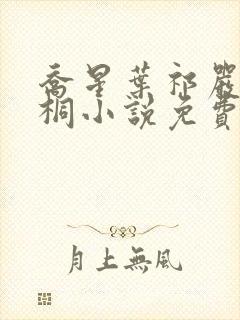 喬星葉祁嚴
桐小說免費
月上無風